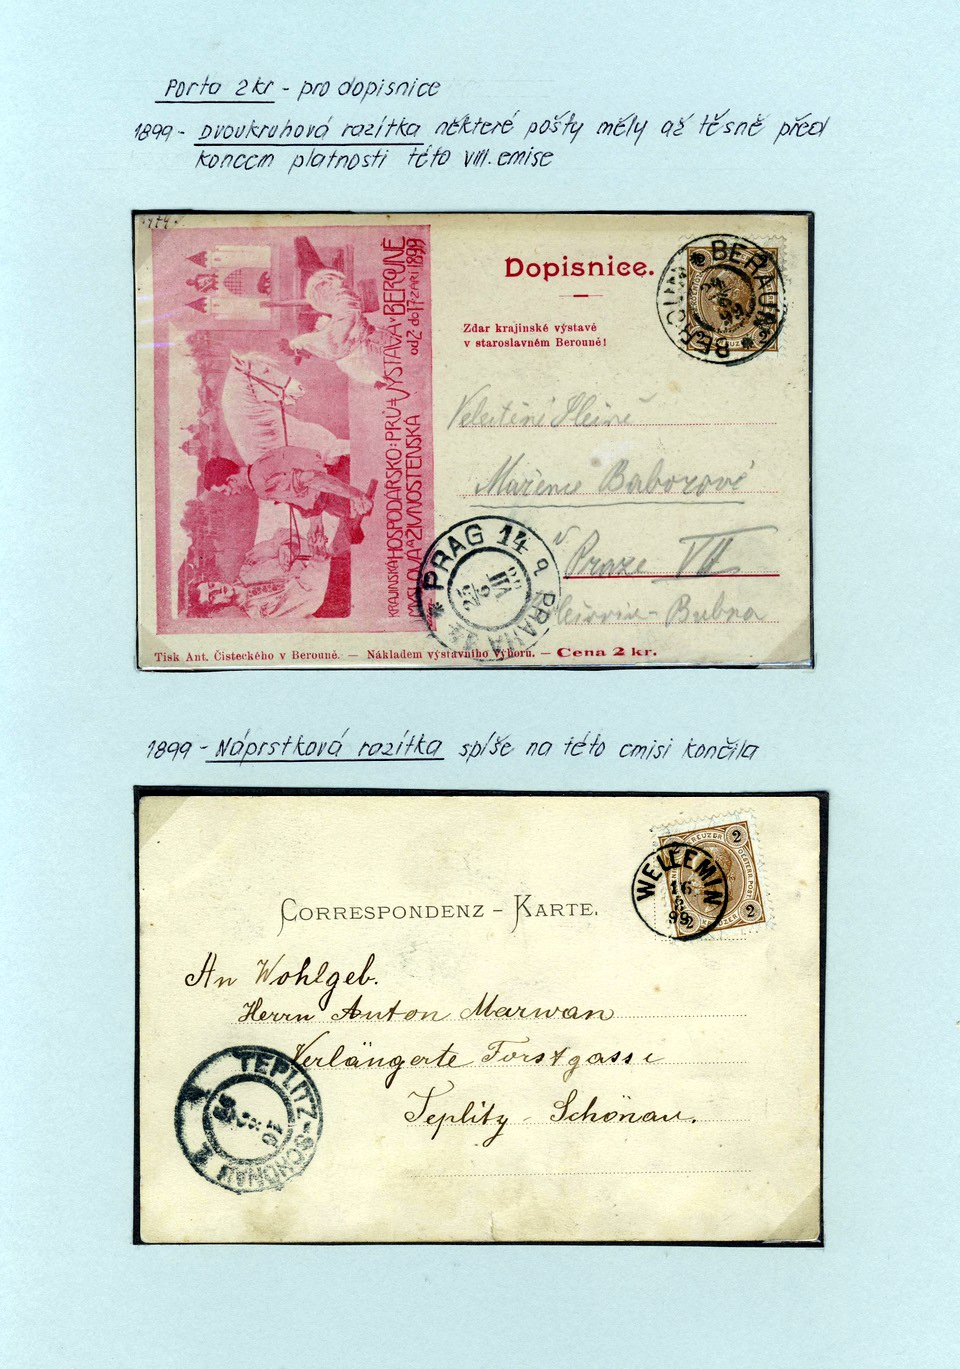 Porto 2 kr - pro dopisnice
1899 - Dvoukruhová razítka některé pošty měly až těsně před
koncem platnosti této VIII. emise
KRAJINSKÁ HOSPODÁŘSKO : PRŮ=
MYSLOVÁ A ŽIVNOSTENSKÁ
VÝSTAVA V BEROUNĚ
od 2 do 17 ZÁŘÍ 1899
Dopisnice.
Zdar krajinské výstavě
v staroslavném Berouně!
BERAUN
BEROUN
Mařence Baborové
v Praze VII
Bubna
PRAG 14 a
PRAHA 14
Tisk Ant. Čisteckého v Berouně. — Nákladem výstavního výboru. — Cena 2 kr.
1899 - Náprstková razítka spíše na této emisi končila
2 KREUZER 2
OESTERR. POST.
2 KREUZER 2
WELLEMIN
16
8
99
CORRESPONDENZ - KARTE.
An Wohlgeb.
Herrn Anton Marwan
Verlängerte Forstgasse
Teplitz - Schönau.
TEPLITZ-SCHÖNAU
16 8 99